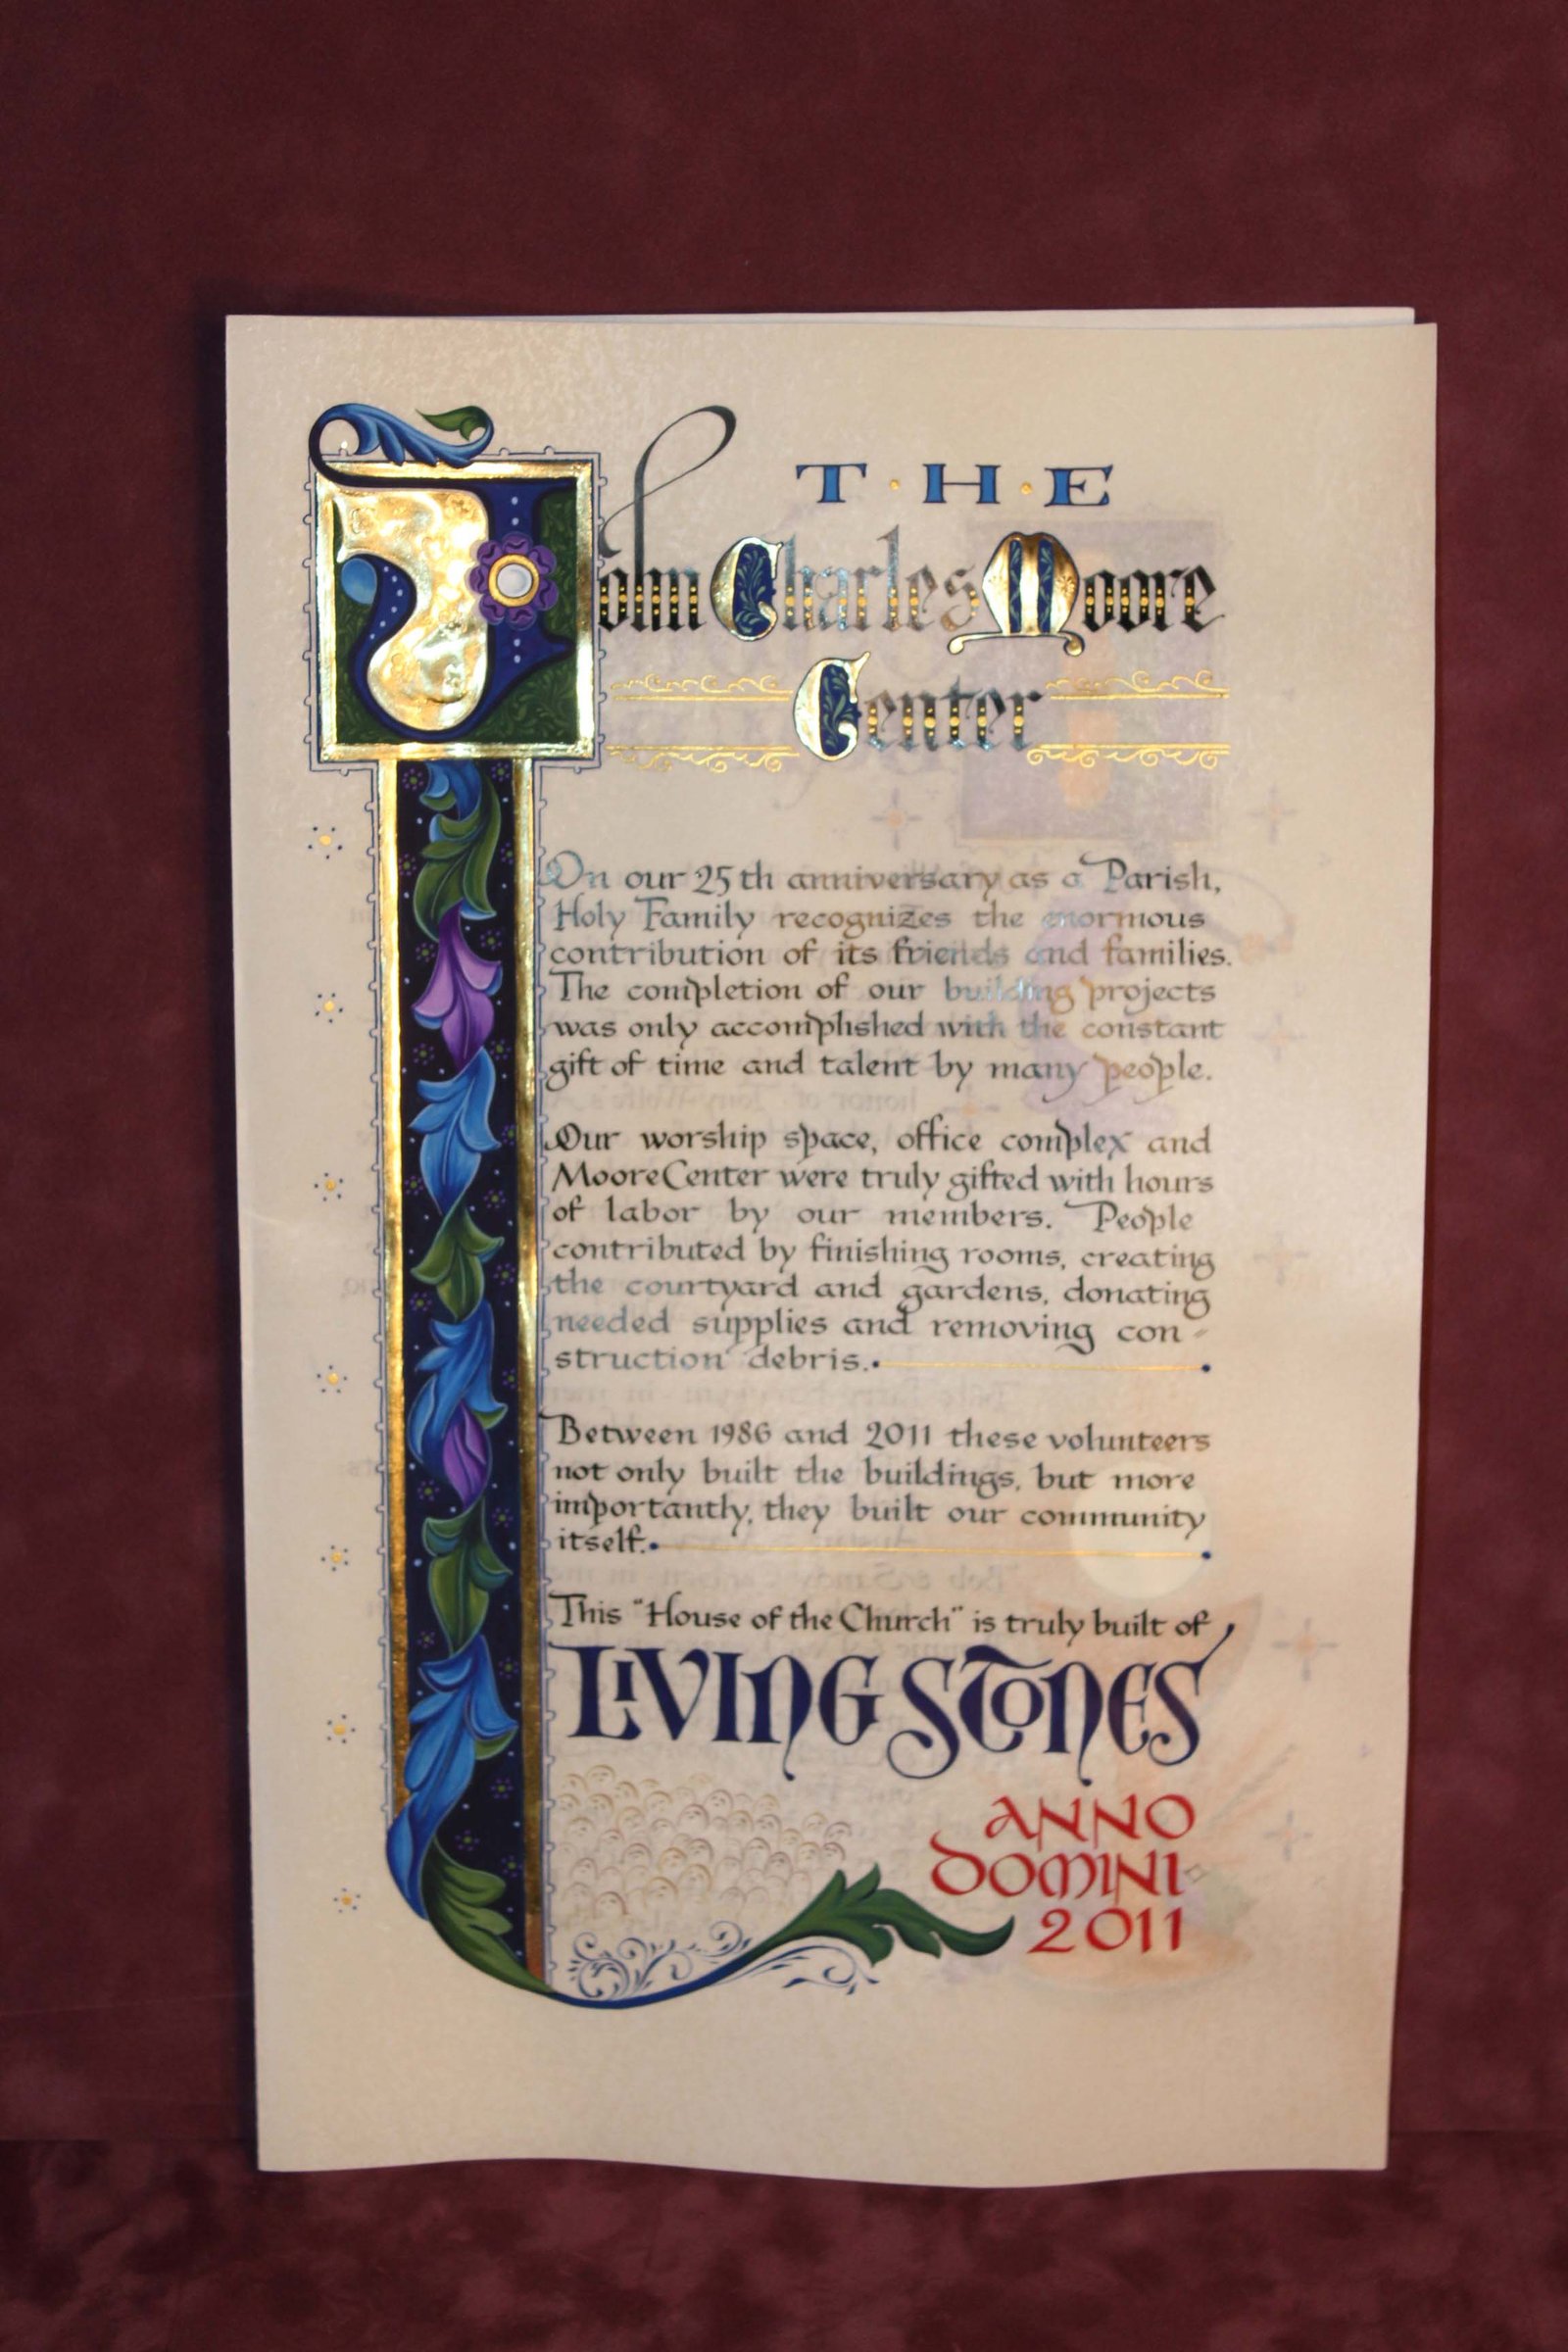 THE
John Charles Moore
Center
On our 25th anniversary as a Parish,
Holy Family recognizes the enormous
contribution of its friends and families.
The completion of our building projects
was only accomplished with the constant
gift of time and talent by many people.
Our worship space, office complex and
Moore Center were truly gifted with hours
of labor by our members. People
contributed by finishing rooms, creating
the courtyard and gardens, donating
needed supplies and removing con-
struction debris.
Between 1986 and 2011 these volunteers
not only built the buildings, but more
importantly, they built our community
itself.
This "House of the Church" is truly built of
LIVING STONES
ANNO
DOMINI
2011